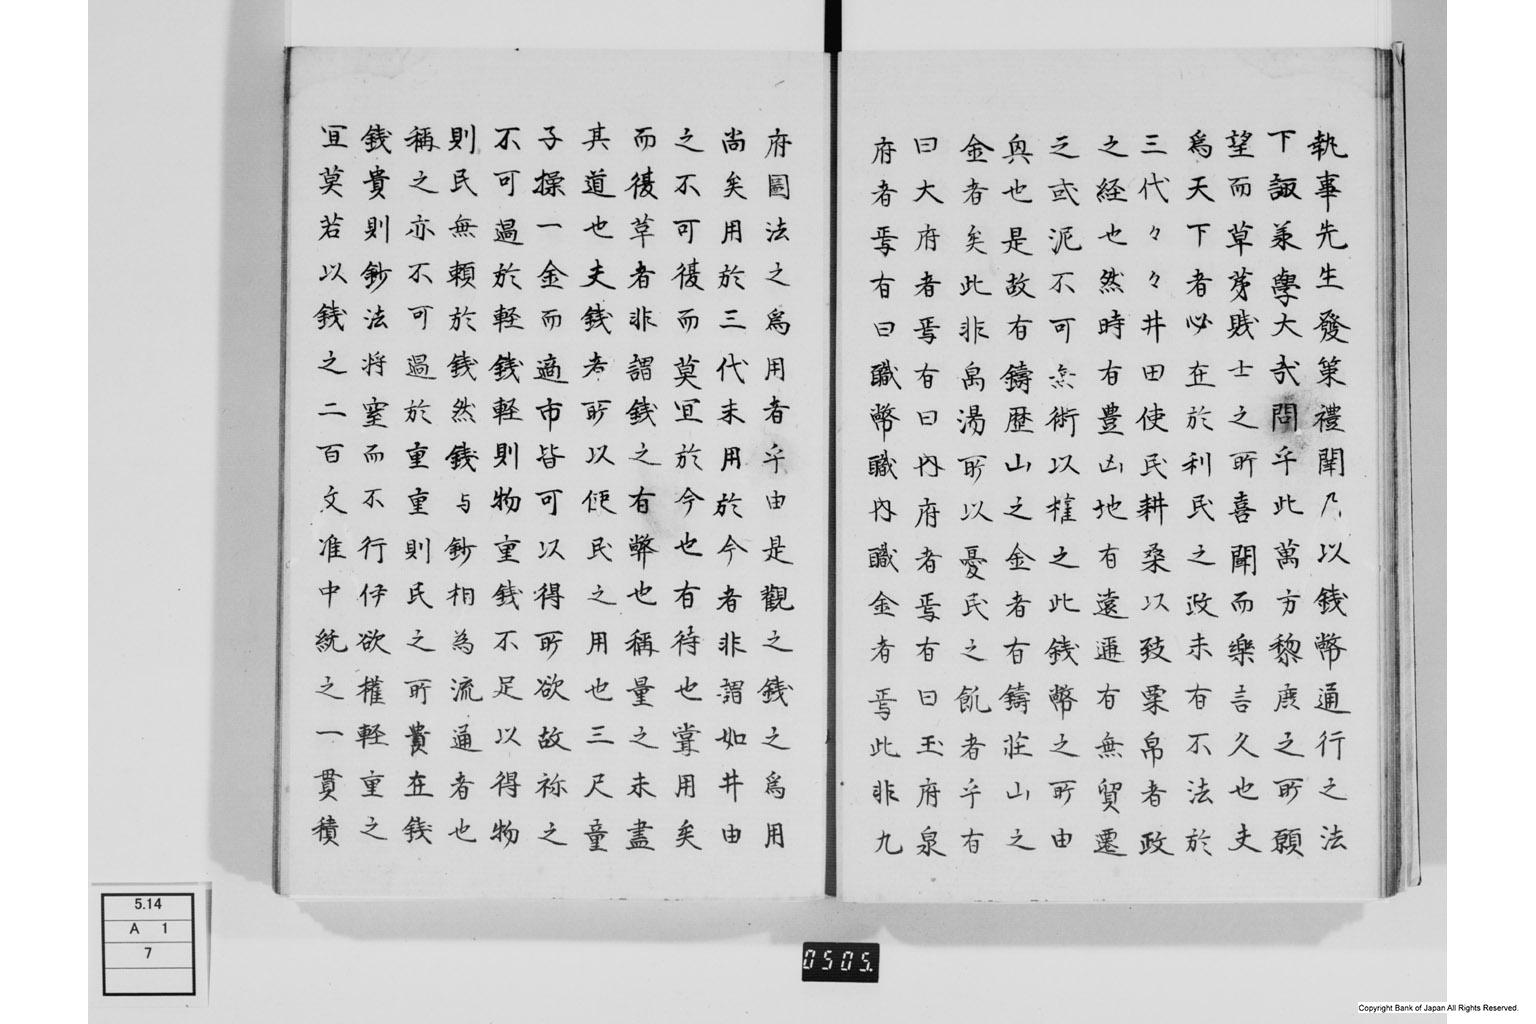 執事先生發策禮闈乃以銭幣通行之法
下諏兼學大哉問乎此萬方黎庶之所願
望而草茅賎士之所喜聞而樂言久也夫
爲天下者必在於利民之政未有不法於
三代々々井田使民耕桑以致粟帛者政
之経也然時有豊凶地有遠邇有無貿遷
之或泥不可無術以權之此銭幣之所由
興也是故有鑄歴山之金者有鑄荘山之
金者矣此非禹湯所以憂民之飢者乎有
曰大府者焉有曰内府者焉有曰玉府泉
府者焉有曰職幣職内職金者焉此非九
府圜法之爲用者乎由是觀之銭之爲用
尚矣用於三代未用於今者非謂如井田
之不可復而莫冝於今也有待也嘗用矣
而復草者非謂銭之有弊也稱量之未盡
其道也夫銭者所以便民之用也三尺童
子操一金而適市皆可以得所欲故祢之
不可過於軽銭軽則物重銭不足以得物
則民無頼於銭然銭与鈔相為流通者也
稱之亦不可過於重重則民之所貴在銭
銭貴則鈔法将窒而不行伊欲權軽重之
冝莫若以銭之二百文准中統之一貫積
5.14
A 1
7
0505.
Copyright Bank of Japan All Rights Reserved.